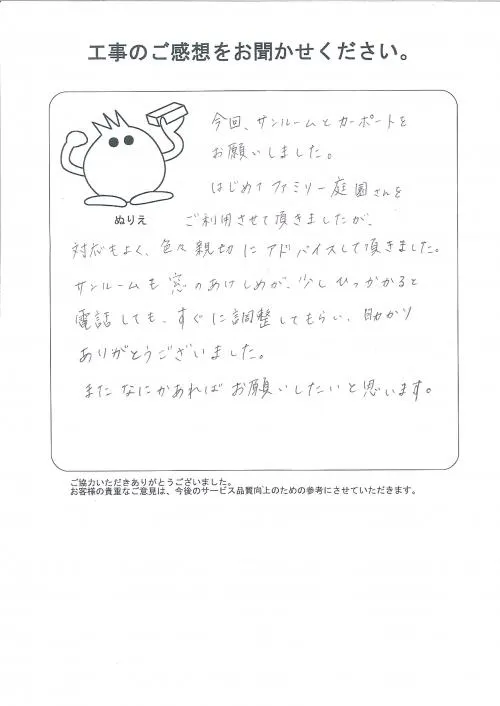 工事のご感想をお聞かせください。
今回、サンルームとカーポートを
お願いしました。
はじめてファミリー庭園さんを
ぬりえ
ご利用させて頂きましたが、
対応もよく、色々親切にアドバイスして頂きました。
サンルームも窓のあけしめが、少しひっかかると
電話しても、すぐに調整してもらい、助かり
ありがとうございました。
またなにかあればお願いしたいと思います。
ご協力いただきありがとうございました。
お客様の貴重なご意見は、今後のサービス品質向上のための参考にさせていただきます。